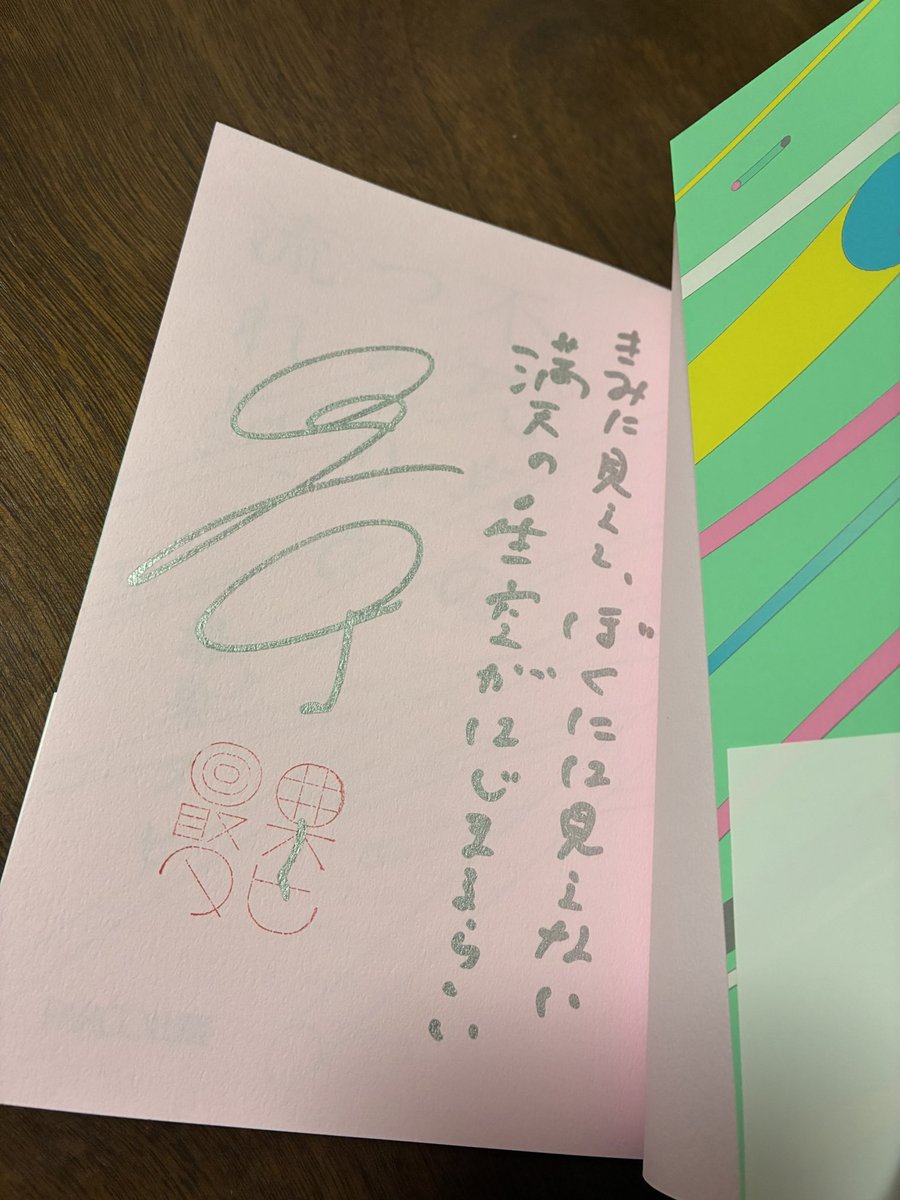 きみに見えて、ぼくには見えない
満天の星空がはじまるらしい
最果
タヒ